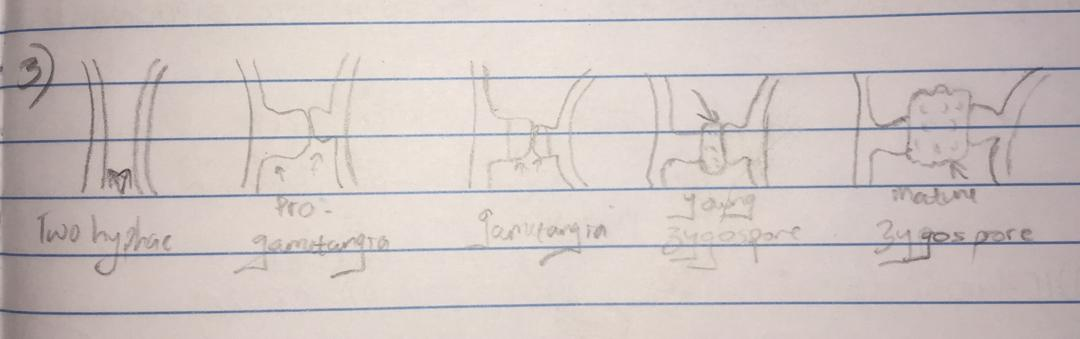 3)
Two hyphae
Pro-
gamutangia
gamutangia
young
zygospore
mature
zygospore